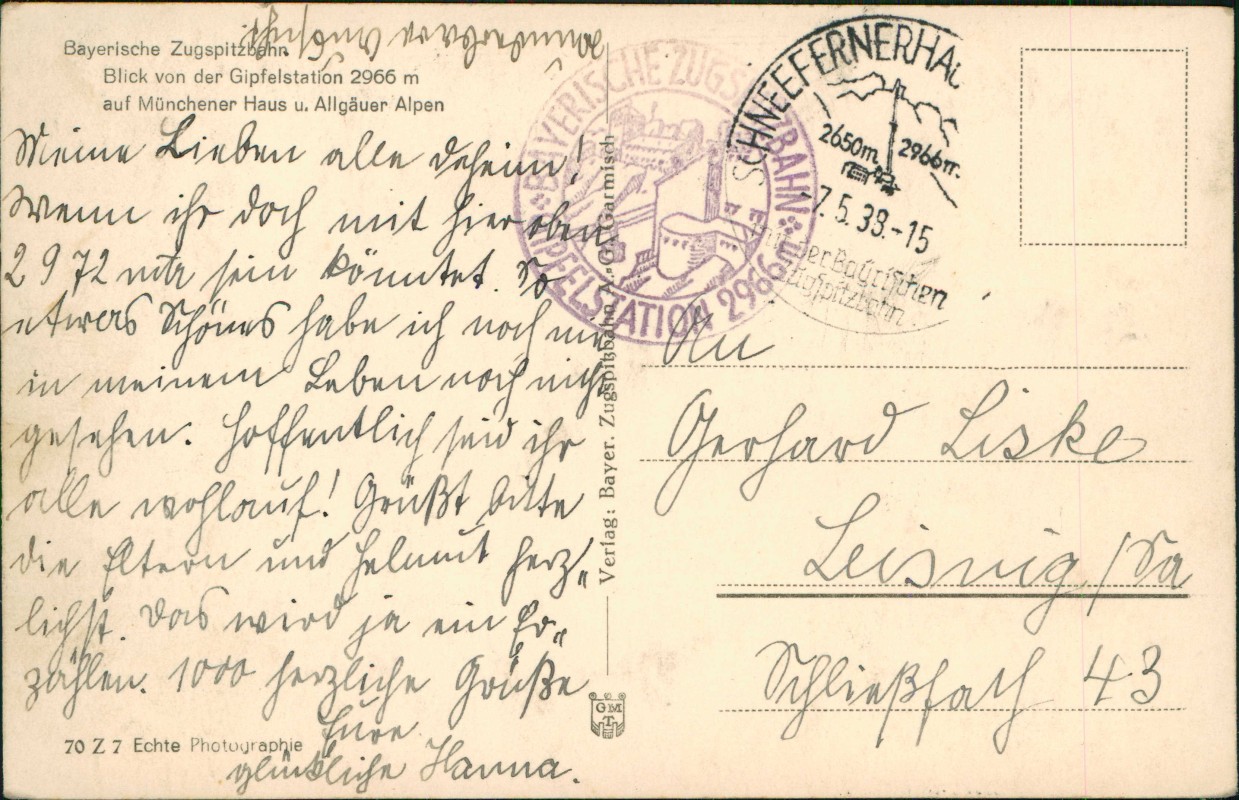 Bayerische Zugspitzbahn.
Blick von der Gipfelstation 2966 m
auf Münchener Haus u. Allgäuer Alpen
Meine Lieben alle daheim!
Wenn ihr doch mit hier oben
2972 mtr sein könntet. So
etwas Schönes habe ich noch nie
in meinem Leben noch nicht
gesehen. Hoffentlich seid ihr
alle wohlauf! Grüßt bitte
die Eltern und Helmut herz-
lichst. Das wird ja ein Er-
zählen. 1000 herzliche Grüße
Eure
glückliche Hanna.
wunderbare
70 Z 7 Echte Photographie
Verlag: Bayer. Zugspitzbahn A.-G., Garmisch
GMT
BAYERISCHE ZUGSPITZBAHN
GIPFELSTATION 2966 m
SCHNEEFERNERHAU
2650m 2966m.
-7.5.39.-15
mit der Bayrischen
Zugspitzbahn
An
Gerhard Liske
Leisnig/Sa
Schließfach 43